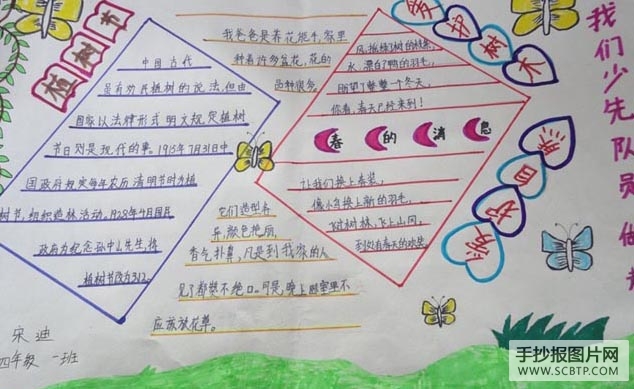 植树节
中国古代
虽有劝民植树的说法,但由
国家以法律形式明文规定植树
节日则是现代的事。1915年7月31日中
国政府规定每年农历清明节时为植
树节,组织造林活动。1928年4月国民
政府为纪念孙中山先生,将
植树节改为3.12。
我爸爸是养花能手,家里
种着许多盆花,花的
品种很多。
它们造型各
异,颜色艳丽,
香气扑鼻,凡是到我家的人
见了都赞不绝口。可是,晚上卧室里不
应该放花草。
风,梳精了树的枝条,
水,漂白了鸭的羽毛,
盼望了整整一个冬天,
你看,春天已经来到!
春的消息
让我们换上春装,
像小鸟换上新的羽毛,
飞过树林,飞上山冈,
到处有春天的欢笑。
爱护树木
我们少先队员做
宋迪
四年级一班
手抄报图片网
WWW.SCBTP.COM